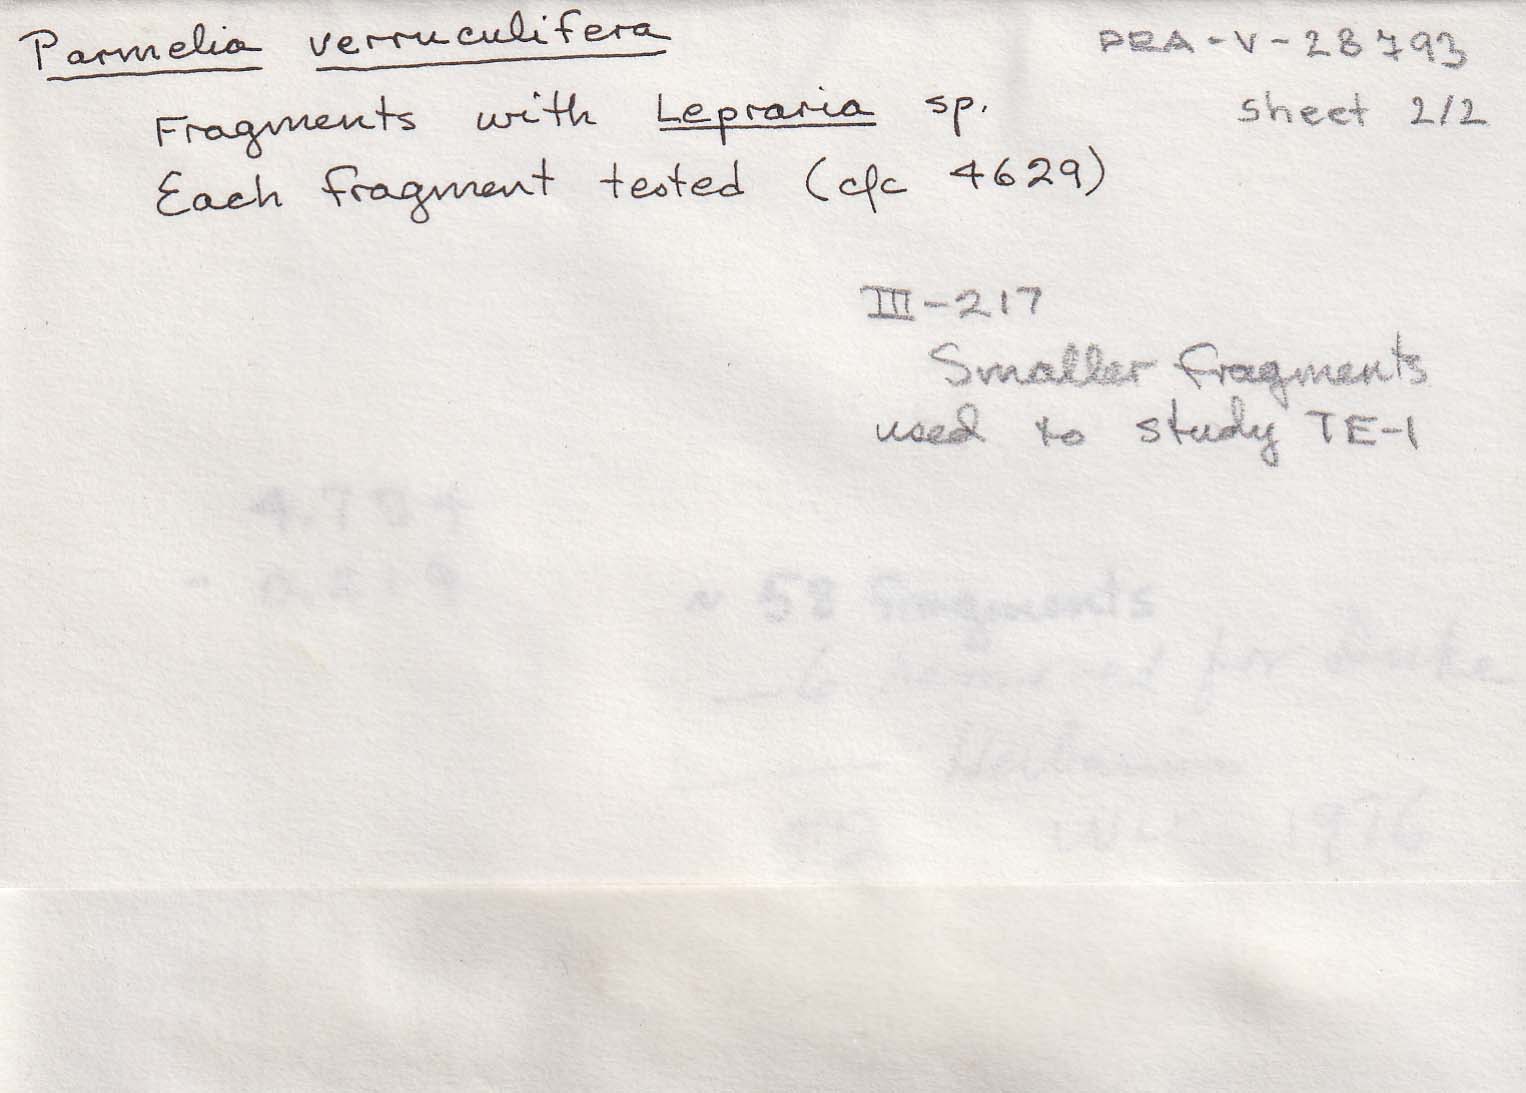 Parmelia verruculifera
PRA-V-28793
sheet 2/2
Fragments with Lepraria sp.
Each fragment tested (c/c 4629)
III-217
Smaller fragments
used to study TE-1
~ 58 fragments
6 for
1976